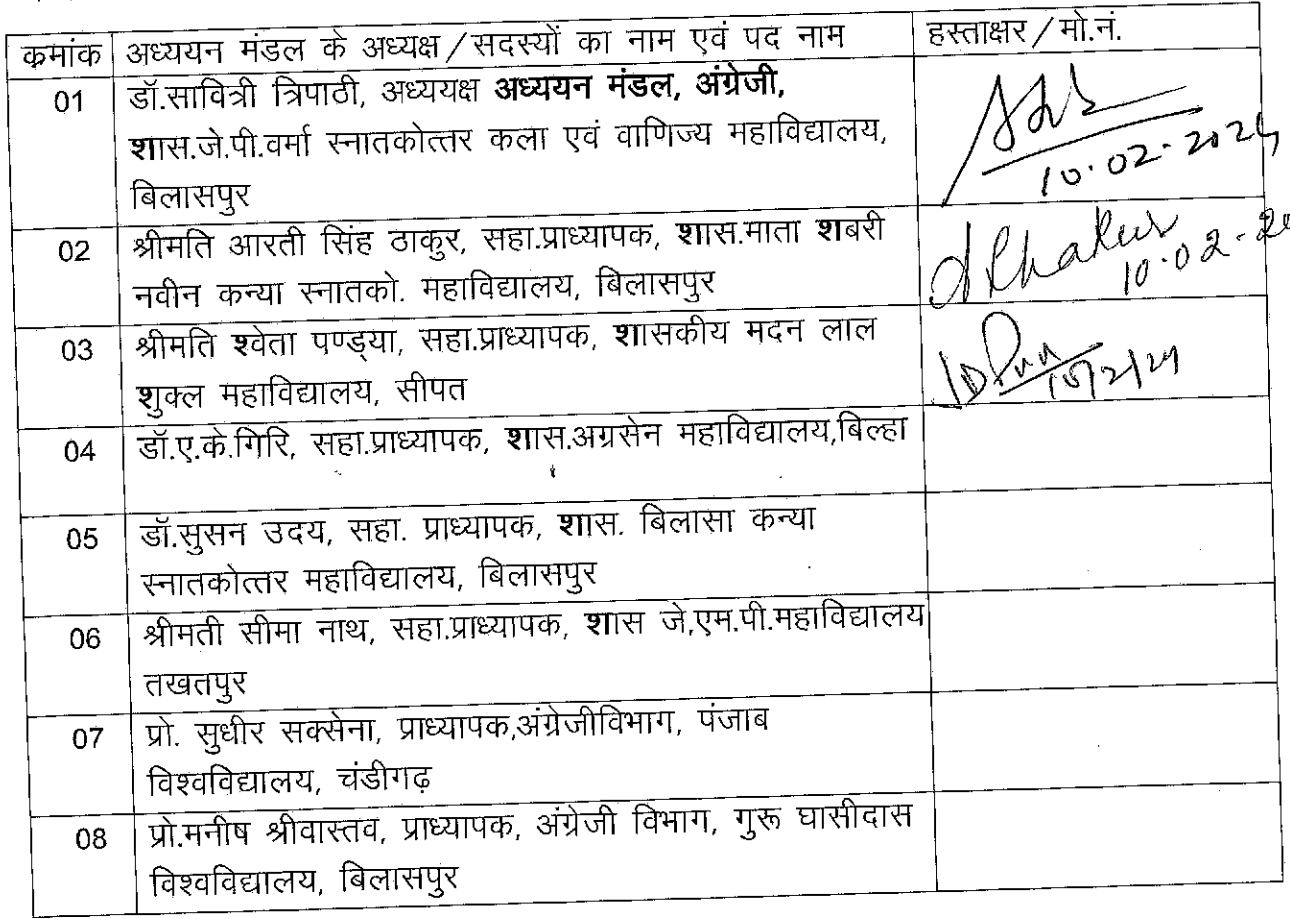 कमांक अध्ययन मंडल के अध्यक्ष/सदस्यों का नाम एवं पद नाम हस्ताक्षर/मो.नं.
01 डॉ.सावित्री त्रिपाठी, अध्ययक्ष अध्ययन मंडल, अंग्रेजी,
शास.जे.पी.वर्मा स्नातकोत्तर कला एवं वाणिज्य महाविद्यालय,
बिलासपुर
10.02.2024
02 श्रीमति आरती सिंह ठाकुर, सहा.प्राध्यापक, शास.माता शबरी
नवीन कन्या स्नातको. महाविद्यालय, बिलासपुर
AThakur
10.02.20
03 श्रीमति श्वेता पण्ड्या, सहा.प्राध्यापक, शासकीय मदन लाल
शुक्ल महाविद्यालय, सीपत
10/2/24
04 डॉ.ए.के.गिरि, सहा.प्राध्यापक, शास.अग्रसेन महाविद्यालय,बिल्हा
05 डॉ.सुसन उदय, सहा. प्राध्यापक, शास. बिलासा कन्या
स्नातकोत्तर महाविद्यालय, बिलासपुर
06 श्रीमती सीमा नाथ, सहा.प्राध्यापक, शास जे,एम.पी.महाविद्यालय
तखतपुर
07 प्रो. सुधीर सक्सेना, प्राध्यापक,अंग्रेजीविभाग, पंजाब
विश्वविद्यालय, चंडीगढ़
08 प्रो.मनीष श्रीवास्तव, प्राध्यापक, अंग्रेजी विभाग, गुरू घासीदास
विश्वविद्यालय, बिलासपुर